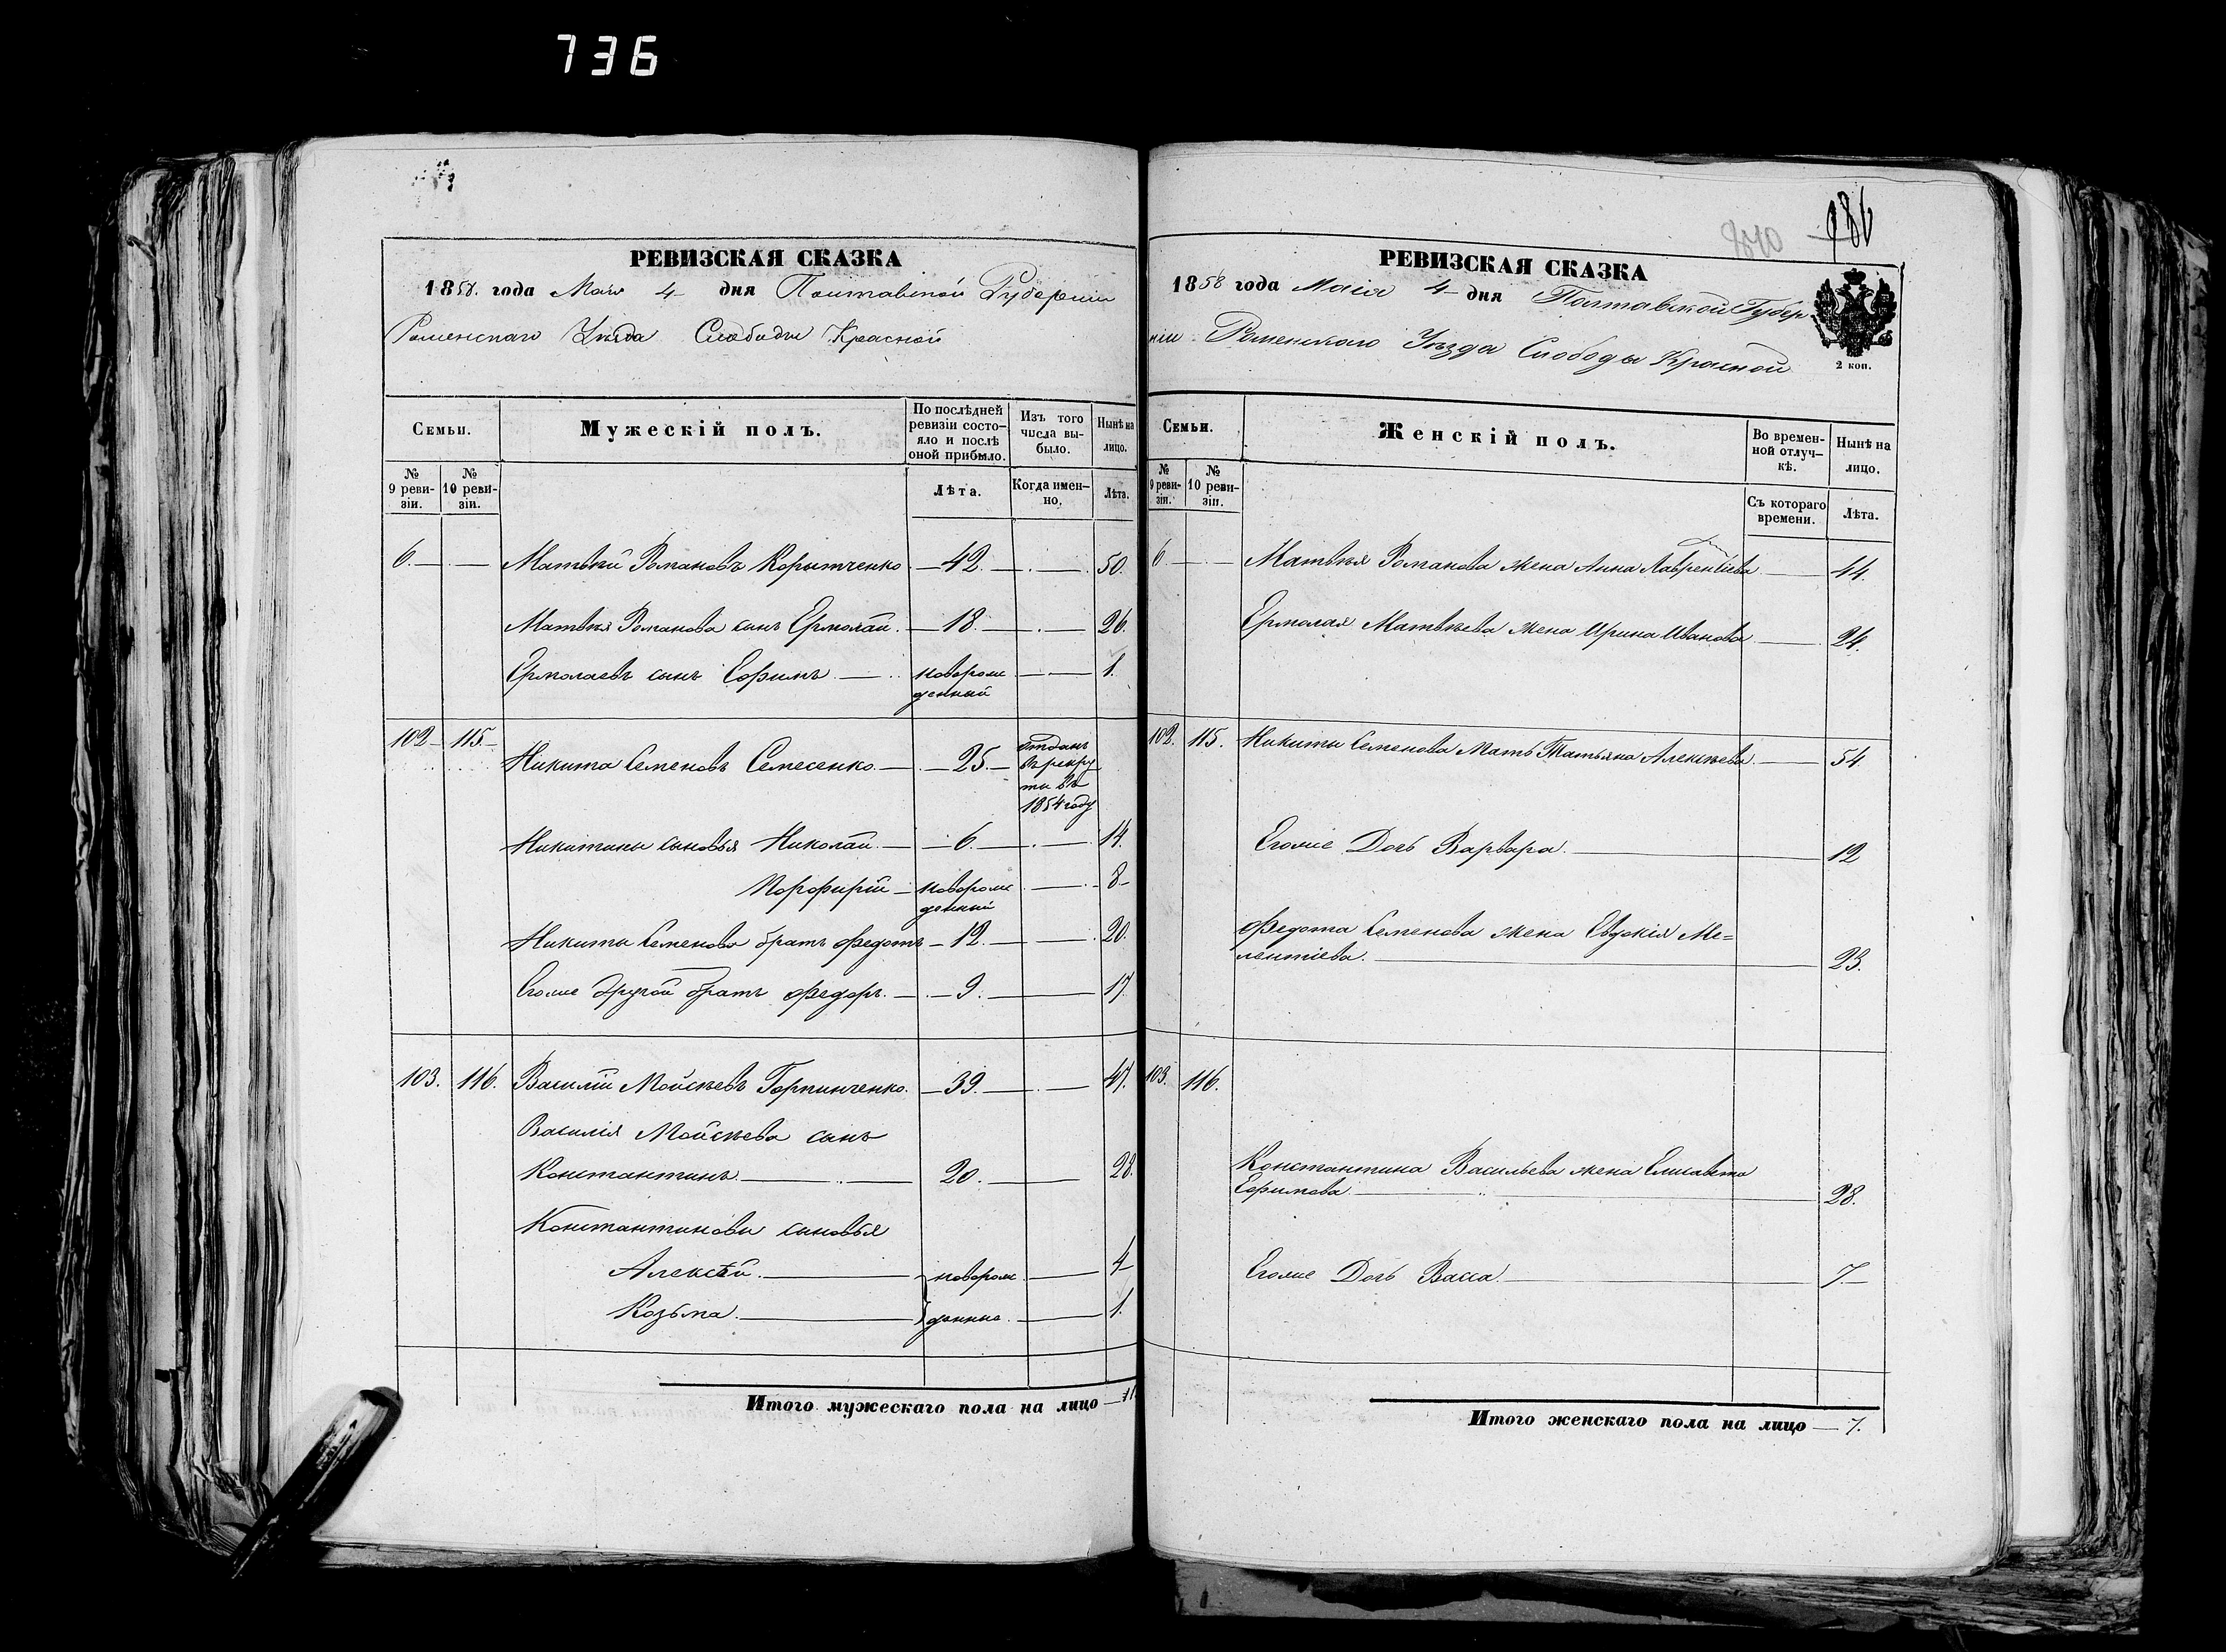 736
РЕВИЗСКАЯ СКАЗКА
1858. года Мая 4 дня Полтавской Губернии
Роменскаго Уѣзда Слободы Красной
Семьи.
Мужескій полъ.
По послѣдней ревизіи состо-
яло и послѣ
оной прибыло.
Изъ того
числа вы-
было.
Нынѣ на
лицо.
№
9 реви-
зіи.
№
10 реви-
зіи.
Лѣта.
Когда имен-
но.
Лѣта.
6. — — Матвѣй Романовъ Корытченко — 42. — . — . 50.
Матвѣя Романова сынъ Ермолай. — 18. — . — 26.
Ермолаевъ сынъ Ефимъ — новорож — . — 1.
денный
102 — 115. — Никита Семеновъ Семесенко. — 25. — отданъ
в рекру
ты въ
1854 году
Никитины сыновья Николай. — 6. — . — . 14.
Порфирій — новорож . — . 8 —
денный
Никиты Семенова братъ Федотъ — 12. — — . 20.
Егоже другой братъ Федоръ. — 9. — 17.
103. 116. Василій Мойсѣевъ Горпинченко. — 39. — . — 47.
Василія Мойсѣева сынъ
Константинъ. — 20. — 28.
Константиновы сыновья
Алексѣй. — новорож. — 4
Козьма. — денные. — 1.
Итого мужескаго пола на лицо — 11
186
РЕВИЗСКАЯ СКАЗКА
1858 года Маія 4 дня Полтавской Губер
ніи Роменскаго Уѣзда Слободы Красной
2 коп.
Семьи.
Женскій полъ.
Во времен-
ной отлуч-
кѣ.
Нынѣ на
лицо.
№
9 реви-
зіи.
№
10 реви-
зіи.
Съ котораго
времени.
Лѣта.
6. — — Матвѣя Романова жена Анна Лаврентіева — 44.
Ермолая Матвѣева жена Ирина Иванова — 24.
102. 115. Никиты Семенова Мать Татьяна Алексѣева — 54.
Егоже Дочь Варвара. — 12
Федота Семенова жена Евдокія Ме=
лентіева. — 23.
103. 116.
Константина Васильева жена Елисавета
Ефимова. — 28.
Егоже Дочь Васса. — 7. —
Итого женскаго пола на лицо — 7.